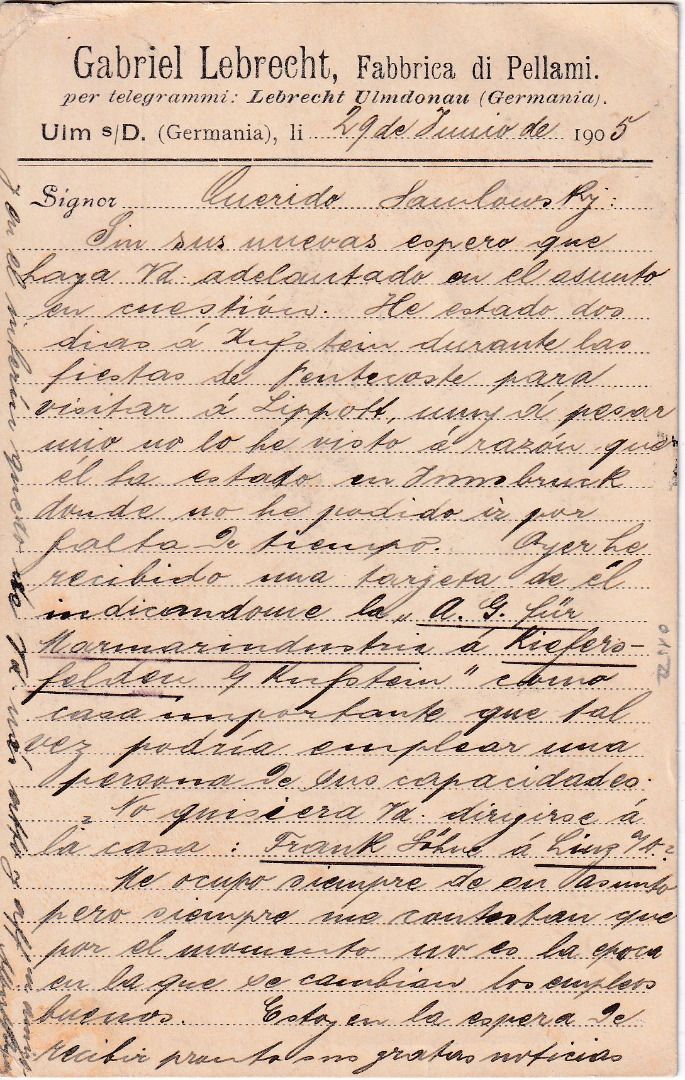 Gabriel Lebrecht, Fabbrica di Pellami.
per telegrammi: Lebrecht Ulmdonau (Germania).
Ulm s/D. (Germania), li 29 de Junio de 1905
Signor Querido
Sin sus nuevas espero que
haya Vd. adelantado en el asunto
en cuestión. He estado dos
dias á Kufstein durante las
fiestas de Pentecoste para
visitar á Lippott, muy á pesar
mio no lo he visto á razón que
él ha estado en Innsbruck
donde no he podido ir por
falta de tiempo. Ayer he
recibido una tarjeta de él
indicandome la „A. G. für
Marmorindustrie á Kiefers-
felden Kufstein" como
casa importante que tal
vez podría emplear una
persona de sus capacidades.
No quisiera Vd. dirigirse á
la casa: Frank Söhne á Linz
Me ocupo siempre de su asunto
pero siempre me contestan que
por el momento no es la epoca
en la que se cambian los empleos
buenos. Estoy en la espera de
recibir pronto sus gratas noticias
y en el interin quedo de Vd